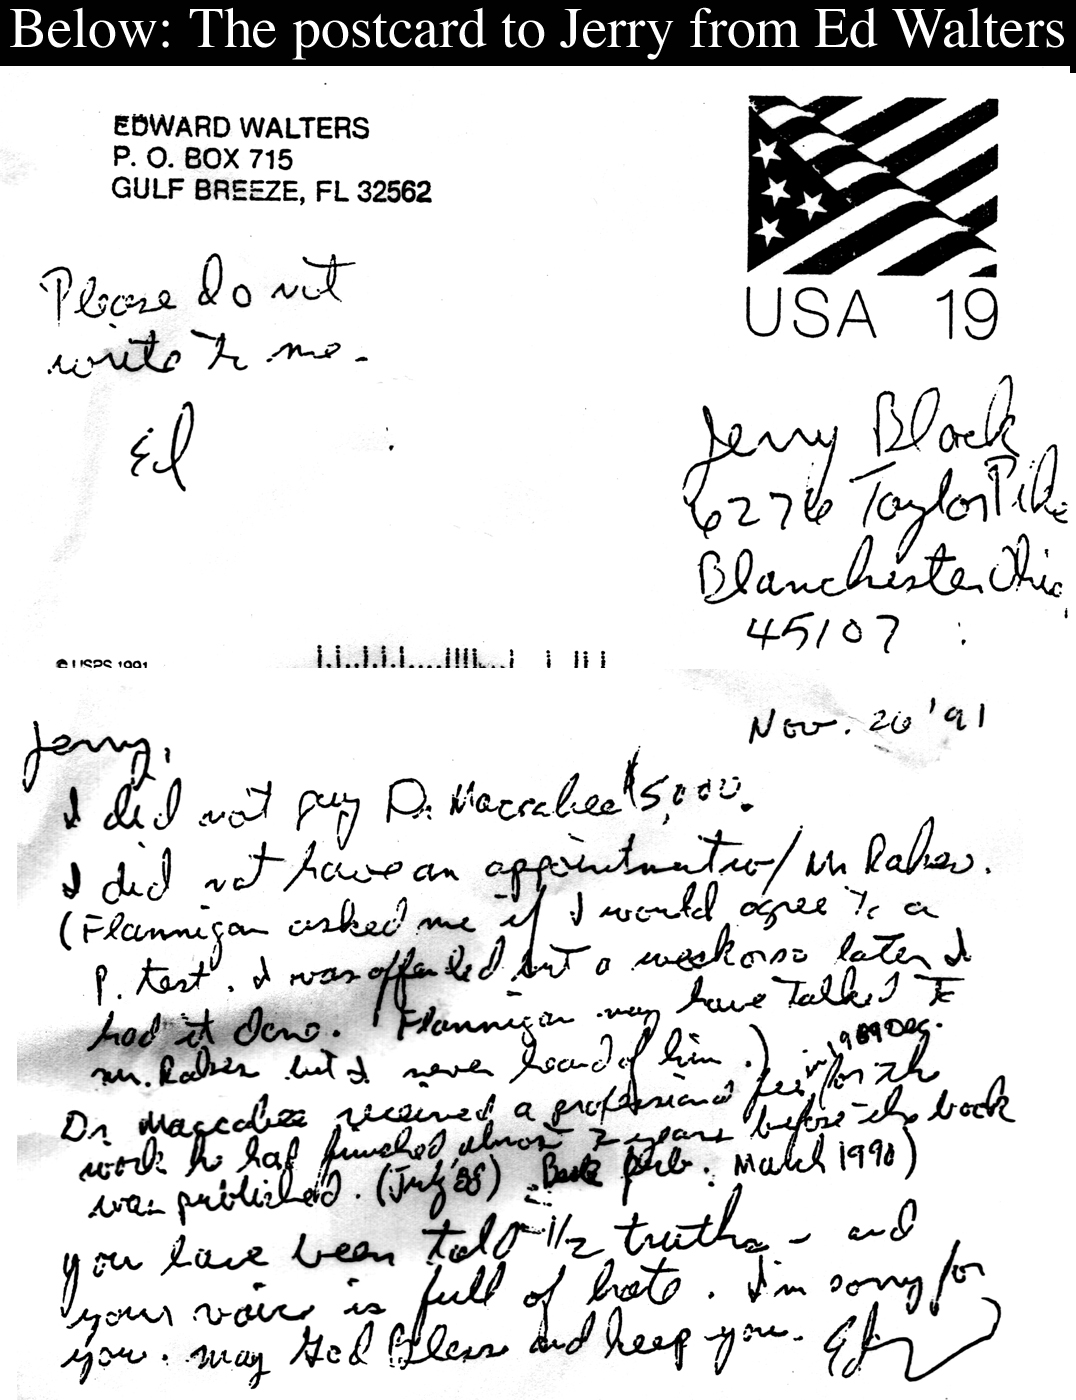 Below: The postcard to Jerry from Ed Walters
EDWARD WALTERS
P. O. BOX 715
GULF BREEZE, FL 32562
USA 19
Please do not
write to me.
Ed
Jerry Black
6276 Taylor Pike
Blanchester Ohio
45107
© USPS 1991
Nov. 26 '91
Jerry,
I did not pay Dr Maccabee $5,000.
I did not have an appointment w/ Mr Raker.
(Flannigan asked me if I would agree to a
P. test. I was offended but a week or so later I
had it done. Flannigan may have talked to
mr. Raker but I never heard of him.)
in 1989 Dec.
Dr Maccabee received a professional fee for the
work he had finished almost 2 years before the book
was published. (July '88) Book pub. March 1990)
you have been told 1/2 truths - and
your voice is full of hate. I'm sorry for
you. may God Bless and keep you. Ed